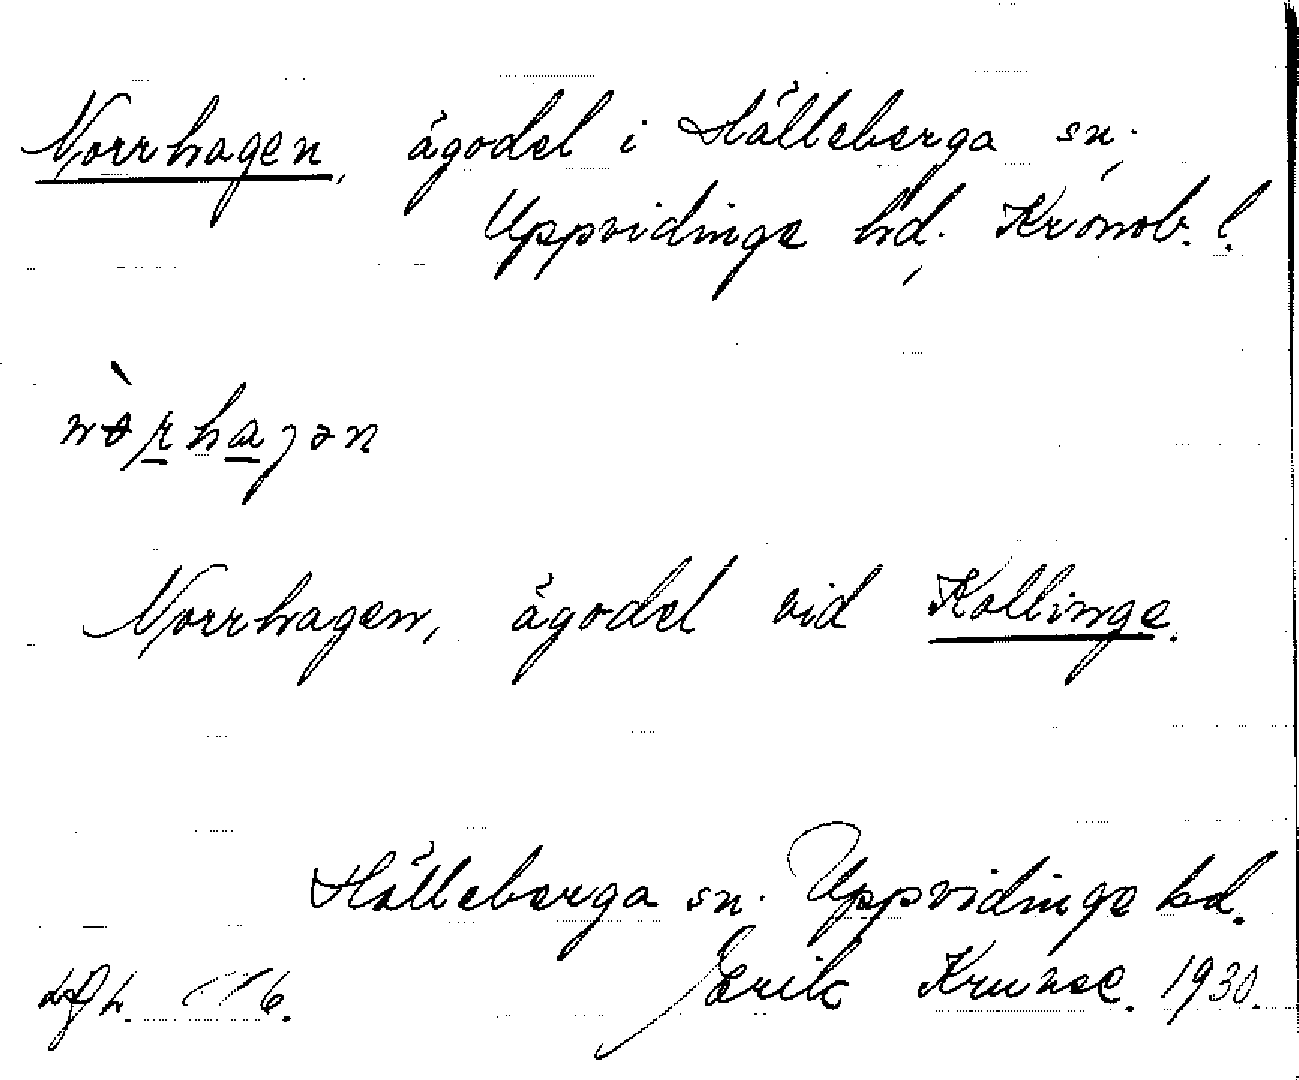 Norrhagen, ägodel i Hälleberga sn.
Uppvidinge hd. Kronob. l.
Norrhagen, ägodel vid Kollinge.
Hälleberga sn. Uppvidinge hd.
Erik Kruuse. 1930.